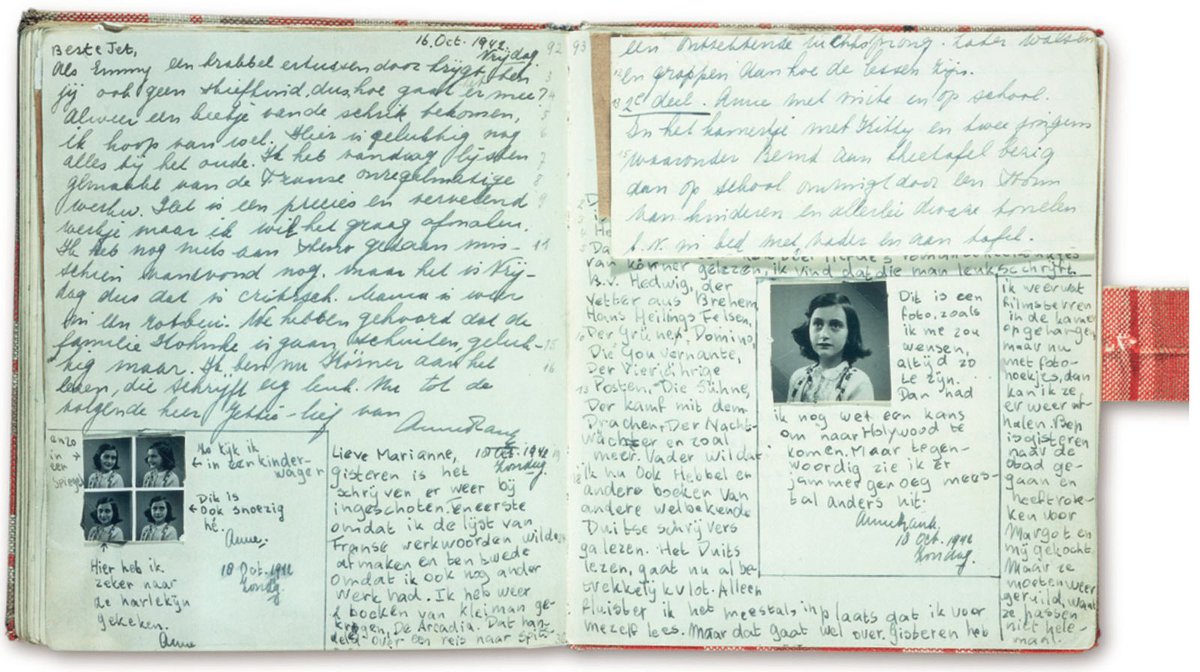 16. Oct. 1942.
Vrijdag
Beste Jet,
Als Emmy een krabbel ertussendoor krijgt, ben
jij ook geen stiefkind, dus hoe gaat er mee?
Alweer een beetje van de schrik bekomen,
ik hoop van wel. Hier is gelukkig nog
alles bij het oude. Ik heb vandaag lijsten
gemaakt van de Franse onregelmatige
werkw. Dat is een precies en vervelend
werkje maar ik wil het graag afmaken.
Ik heb nog niets aan steno gedaan mis-
schien vanavond nog. maar het is Vrij-
dag dus dat is critisch. Mama is weer
We hebben gehoord dat de
familie is gaan schuilen, geluk-
kig maar. Ik ben nu Körner aan het
lezen, die schrijft erg leuk. Nu tot de
volgende keer Jettie-lief van
Anne Frank
92
3
5
6
7
8
9
11
15
16
en zo
in
een
Spiegel
No kijk ik
in een kinder-
wagen
Dit is
ook snoezig
hé.
Anne.
Hier heb ik
zeker naar
de harlekijn
gekeken.
Anne
18 Oct. 1942
Zondag.
Lieve Marianne, 18 Oct. 1942
Zondag.
gisteren is het
schrijven er weer bij
ingeschoten. Ten eerste
omdat ik de lijst van
Franse werkwoorden wilde
afmaken en ten twede
omdat ik ook nog ander
werk had. Ik heb weer
2 boeken van Kleiman ge-
kregen, De Arcadia. Dat han-
delt over een reis naar Spits-
93
een ontzettende luchtsprong. Later walsen
en grappen aan hoe de lessen zijn.
2e deel. Anne met visite en op school.
In het kamertje met Kitty en twee jongens
waaronder Bernd aan theetafel bezig
dan op school omringd door een stroom
van kinderen en allerlei dwaze tonelen
b.v. in bed met vader en aan tafel.
van Körner gelezen, ik vind dat die man leuk schrijft.
B.v. Hedwig, der
Vetter aus Bremen
Hans Heilings Felsen,
Der Grünen Domino,
Die Gouvernante,
Der Vierjährige
Posten, Die Sühne,
Der Kamf mit dem
Drachen, Der Nacht-
wächter en zoal
meer. Vader wil dat
ik nu ook Hebbel en
andere boeken van
andere welbekende
Duitse schrijvers
ga lezen. Het Duits
lezen, gaat nu al be-
trekkelijk vlot. Alleen
fluister ik het meestal, in plaats dat ik voor
mezelf lees. Maar dat gaat wel over. gisteren heb
Dit is een
foto, zoals
ik me zou
wensen,
altijd zo
te zijn.
Dan had
ik nog wel een kans
om naar Holywood te
komen. Maar tegen-
woordig zie ik er
jammer genoeg mees-
tal anders uit.
Anne Frank.
18 Oct. 1942
Zondag.
ik weer wat
filmsterren
in de kamer
opgehangen,
maar nu
met foto
hoekjes, dan
kan ik ze
er weer af-
halen. Bep
is gisteren
naar de
stad ge-
gaan en
heeft rok-
ken voor
Margot en
mij gekocht.
Maar ze
moeten weer
geruild, want
ze passen
niet hele-
maal.